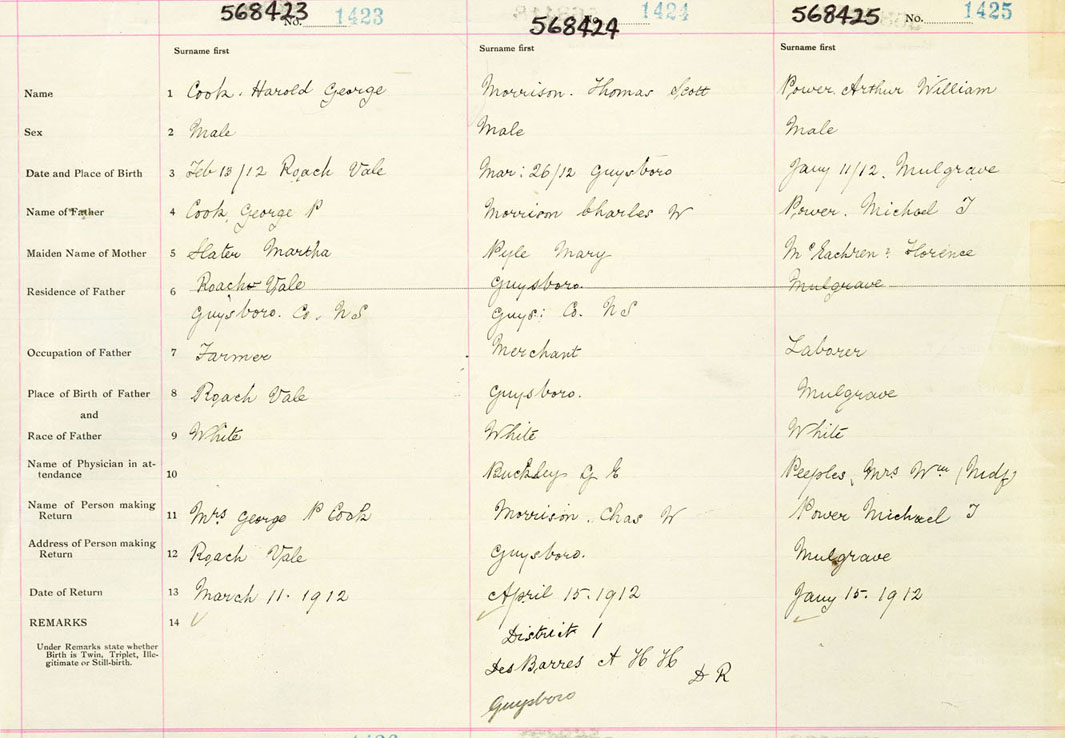 568423 No. 1423 568424 No. 1424 568425 No. 1425
Surname first Surname first Surname first
Name 1 Cook. Harold George Morrison. Thomas Scott Power. Arthur William
Sex 2 Male Male Male
Date and Place of Birth 3 Feb 13/12 Roach Vale Mar: 26/12 Guysboro Jany 11/12. Mulgrave
Name of Father 4 Cook, George P Morrison Charles W Power. Michael J
Maiden Name of Mother 5 Slater Martha Pyle Mary McEachren: Florence
Residence of Father 6 Roach Vale Guysboro. Mulgrave
Guysboro. Co. NS Guys: Co. NS
Occupation of Father 7 Farmer Merchant Laborer
Place of Birth of Father 8 Roach Vale Guysboro. Mulgrave
and
Race of Father 9 White White White
Name of Physician in at- 10 Buckley G E Peeples, Mrs Wm (Mdf)
tendance
Name of Person making 11 Mrs George P Cook Morrison. Chas W Power Michael J
Return
Address of Person making 12 Roach Vale Guysboro. Mulgrave
Return
Date of Return 13 March 11. 1912 April 15. 1912 Jany 15. 1912
REMARKS 14
District 1
Under Remarks state whether
Birth is Twin, Triplet, Ille-
gitimate or Still-birth.
DesBarres A H H D R
Guysboro